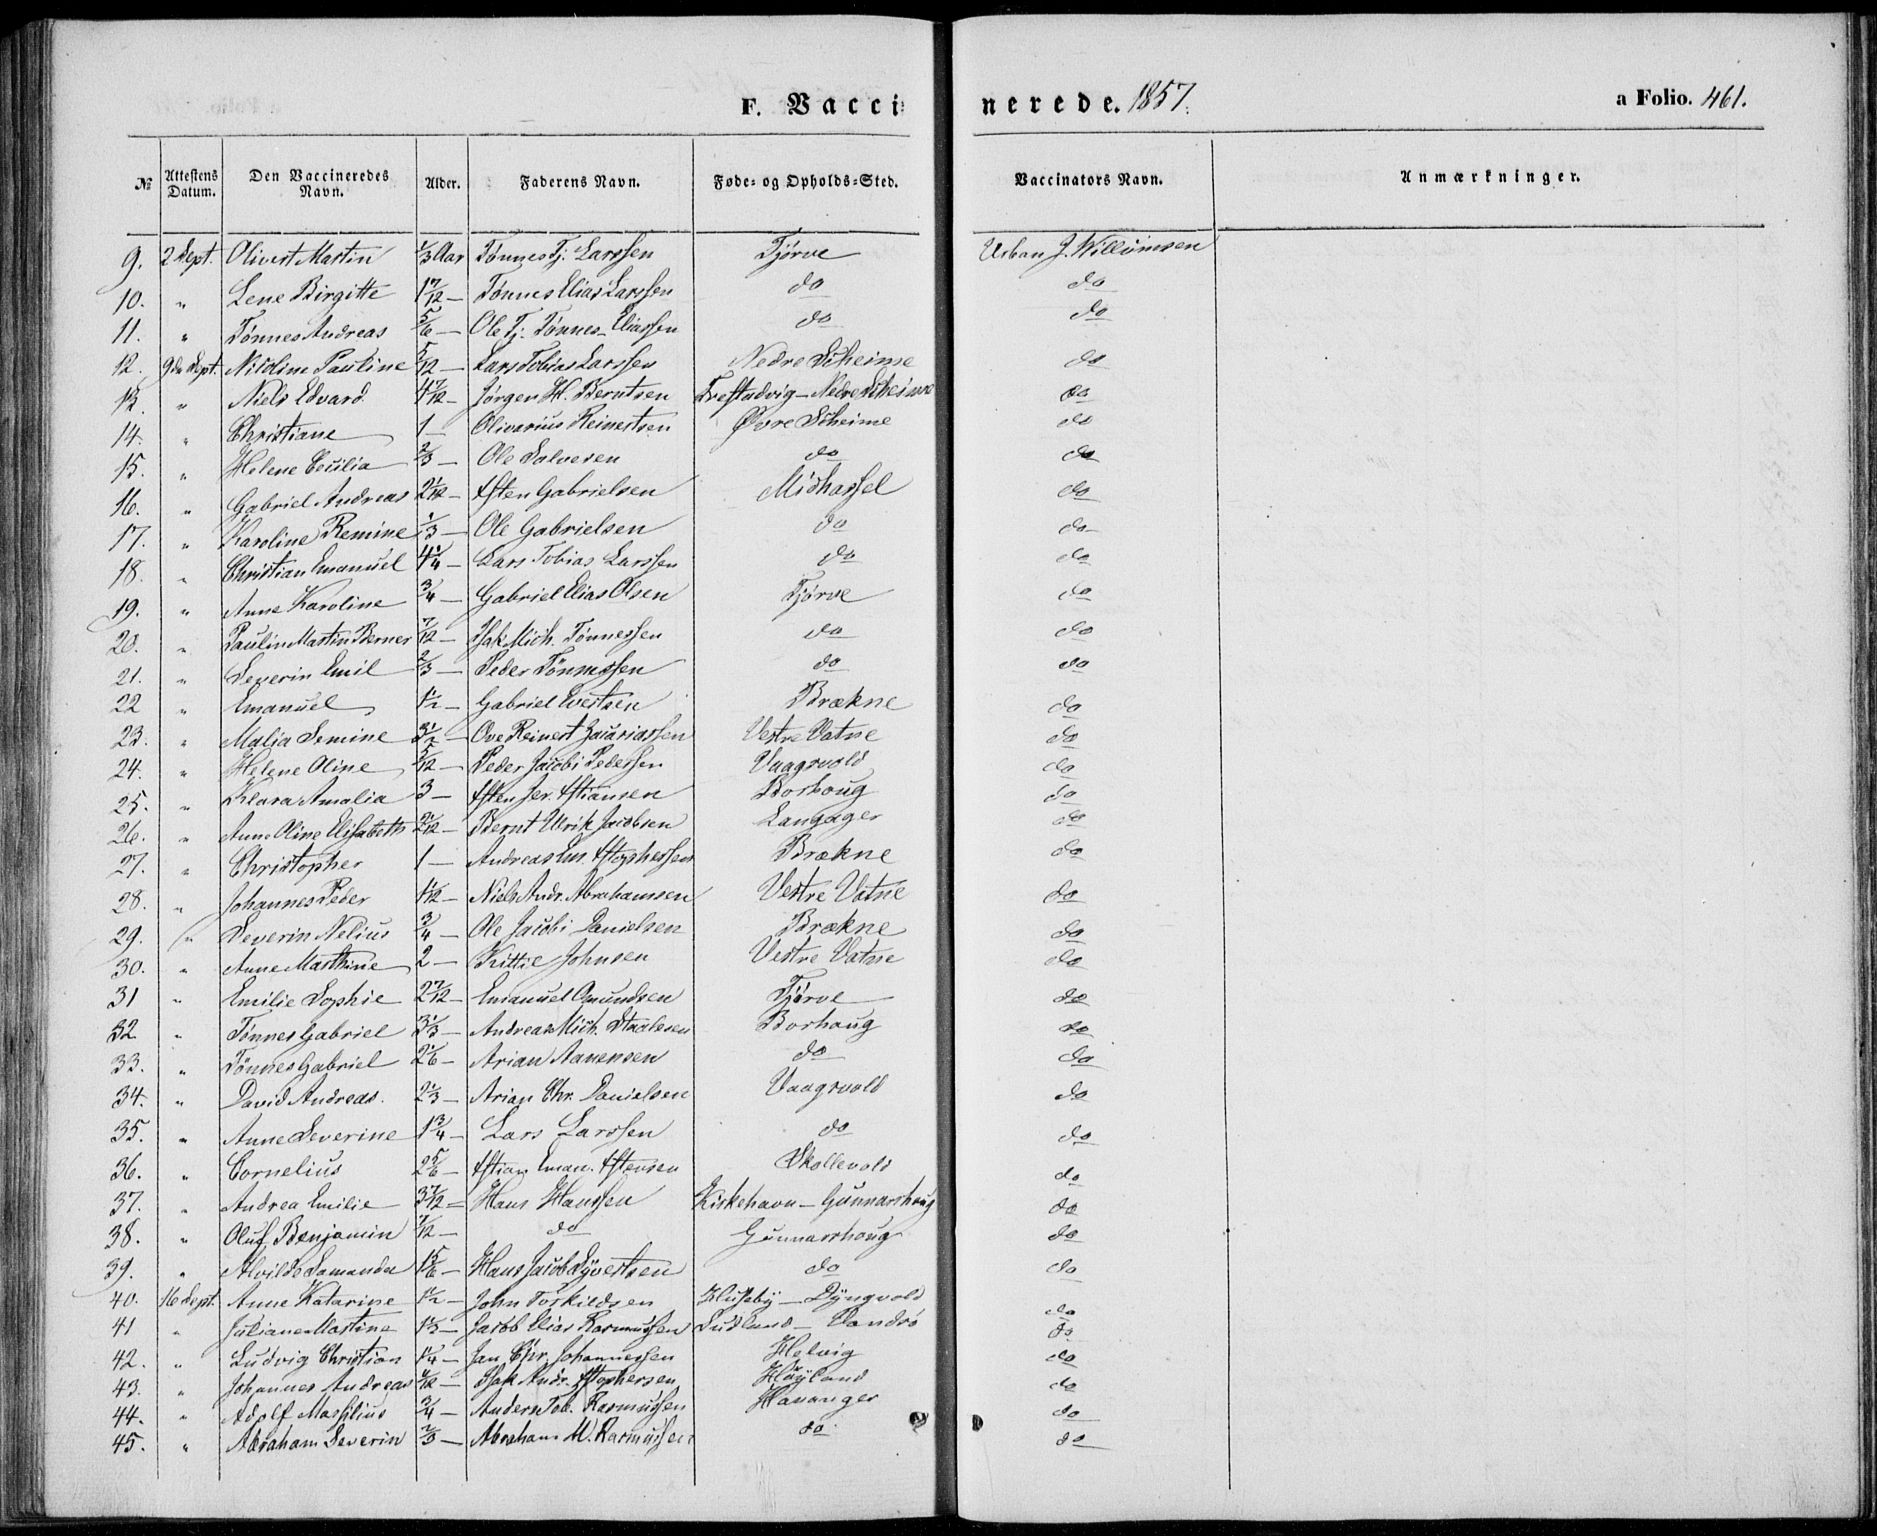 F. Vaccinerede. 1857. a Folio. 461.
№ Attestens Datum. Den Vaccineredes Navn. Alder. Faderens Navn. Føde- og Opholds-Sted. Vaccinators Navn. Anmærkninger.
9. 2 Sept. Olivert Martin 1/3 Aar Tønnes Tj. Larssen Tjørve Urban J. Willumsen
10. " Lene Birgitte 1 7/12 — Tønnes Elias Larssen do do
11. " Tønnes Andreas 5/6 — Ole Tj. Tønnes-Eliassen do do
12. 9de Sept. Nicoline Pauline 5/12 — Lars Tobias Larssen Nedre Skeime do
13. " Niels Edvard 4 7/12 — Jørgen H. Berntsen Trestadvig — Nedre Skeime do
14. " Christiane 1 — Olivarius Reinertsen Øvre Skeime do
15. " Helene Cecilia 2/3 — Ole Salvesen do do
16. " Gabriel Andreas 2 1/12 — Esten Gabrielsen Midhassel do
17. " Karoline Remine 1/3 — Ole Gabrielsen do do
18. " Christian Emanuel 4 1/4 — Lars Tobias Larssen do do
19. " Anne Karoline 3/4 — Gabriel Elias Olsen Tjørve do
20. " Paulin Martin Berner 7/12 — Isak Mich. Tønnessen do do
21. " Severin Emil 2/3 — Peder Tønnessen do do
22 " Emanuel 1 1/2 — Gabriel Evertsen Brækne do
23. " Malia Semine 3 1/2 — Ove Reinert Zacariassen Vestre Vatne do
24. " Helene Oline 5/12 — Peder Jacobi Pedersen Vaagsvold do
25. " Klara Amalia 3 — Esten Jer. Stiansen Borhaug do
26. " Anne Oline Elisabeth 2 /12 — Bernt Ulrik Jacobsen Langager do
27. " Christopher 1 — Andreas Em. Brækne do
28. " Johannes Peder 1 /12 — Niels Andr. Abrahamsen Vestre Vatne do
29. " Severin Nelius 3/4 — Ole Jacobi Danielsen Brækne do
30. " Anne Marthine 2 — Kittil Johnsen Vestre Vatne do
31 " Emilie Sophie 2 7/12 — Emanuel Omundsen Tjørve do
32 " Tønnes Gabriel 3 1/3 — Andreas Mich. Staalesen Borhaug do
33. " Tønnes Gabriel 2 1/6 — Arian Aanensen do do
34. " David Andreas. 2 1/3 — Arian Chr. Danielsen Vaagsvold do
35. " Anne Severine 1 3/4 — Lars Larssen do do
36. " Cornelius 2 5/6 — Stian Eman. Stensen Skollevold do
37. " Andrea Emilie 3 7/12 = Hans Hanssen Kirkehavn — Gunnarshaug do
38. " Oluf Benjamin 7/12 — do Gunnarshaug do
39. " Alvilde Samanda 1 5/6 — Hans Jacob Syvertsen do do
40. 16 Sept. Anne Katarine 1 1/2 — John Torkildsen Huseby — Dyngvold do
41 " Juliane Martine 1 1/3 — Jacob Elias Rasmussen Sudland — Vandsø do
42. " Ludvig Christian 1 1/4 — Jan Chr. Johannessen Helvig do
43. " Johannes Andreas /12 — Isak Andr. Høyland do
44. " Adolf Massilius 3/4 — Anders Tob. Rasmussen Havanger do
45. " Abraham Severin 2/3 — Abraham M. Rasmussen do do